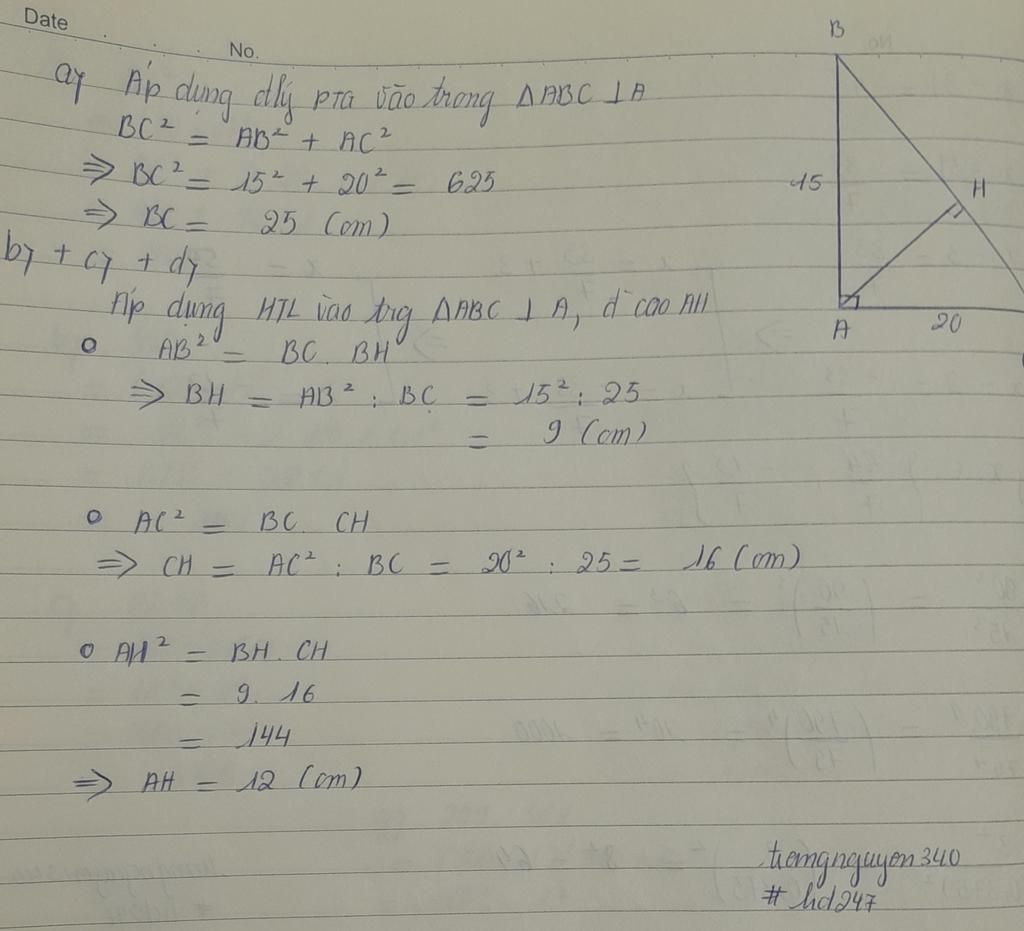 Date
No.
a, Áp dụng đlý PTG vào trong ΔABC ⊥ A
BC² = AB² + AC²
⇒ BC² = 15² + 20² = 625
⇒ BC = 25 (cm)
b, + c, + d,
Áp dụng HTL vào trg ΔABC ⊥ A, đ cao AH
AB² = BC. BH
⇒ BH = AB² : BC = 15² : 25
= 9 (cm)
AC² = BC. CH
⇒ CH = AC² : BC = 20² : 25 = 16 (cm)
AH² = BH. CH
= 9. 16
= 144
⇒ AH = 12 (cm)
B
15
H
A
20
tramgnguyen340
# hd247